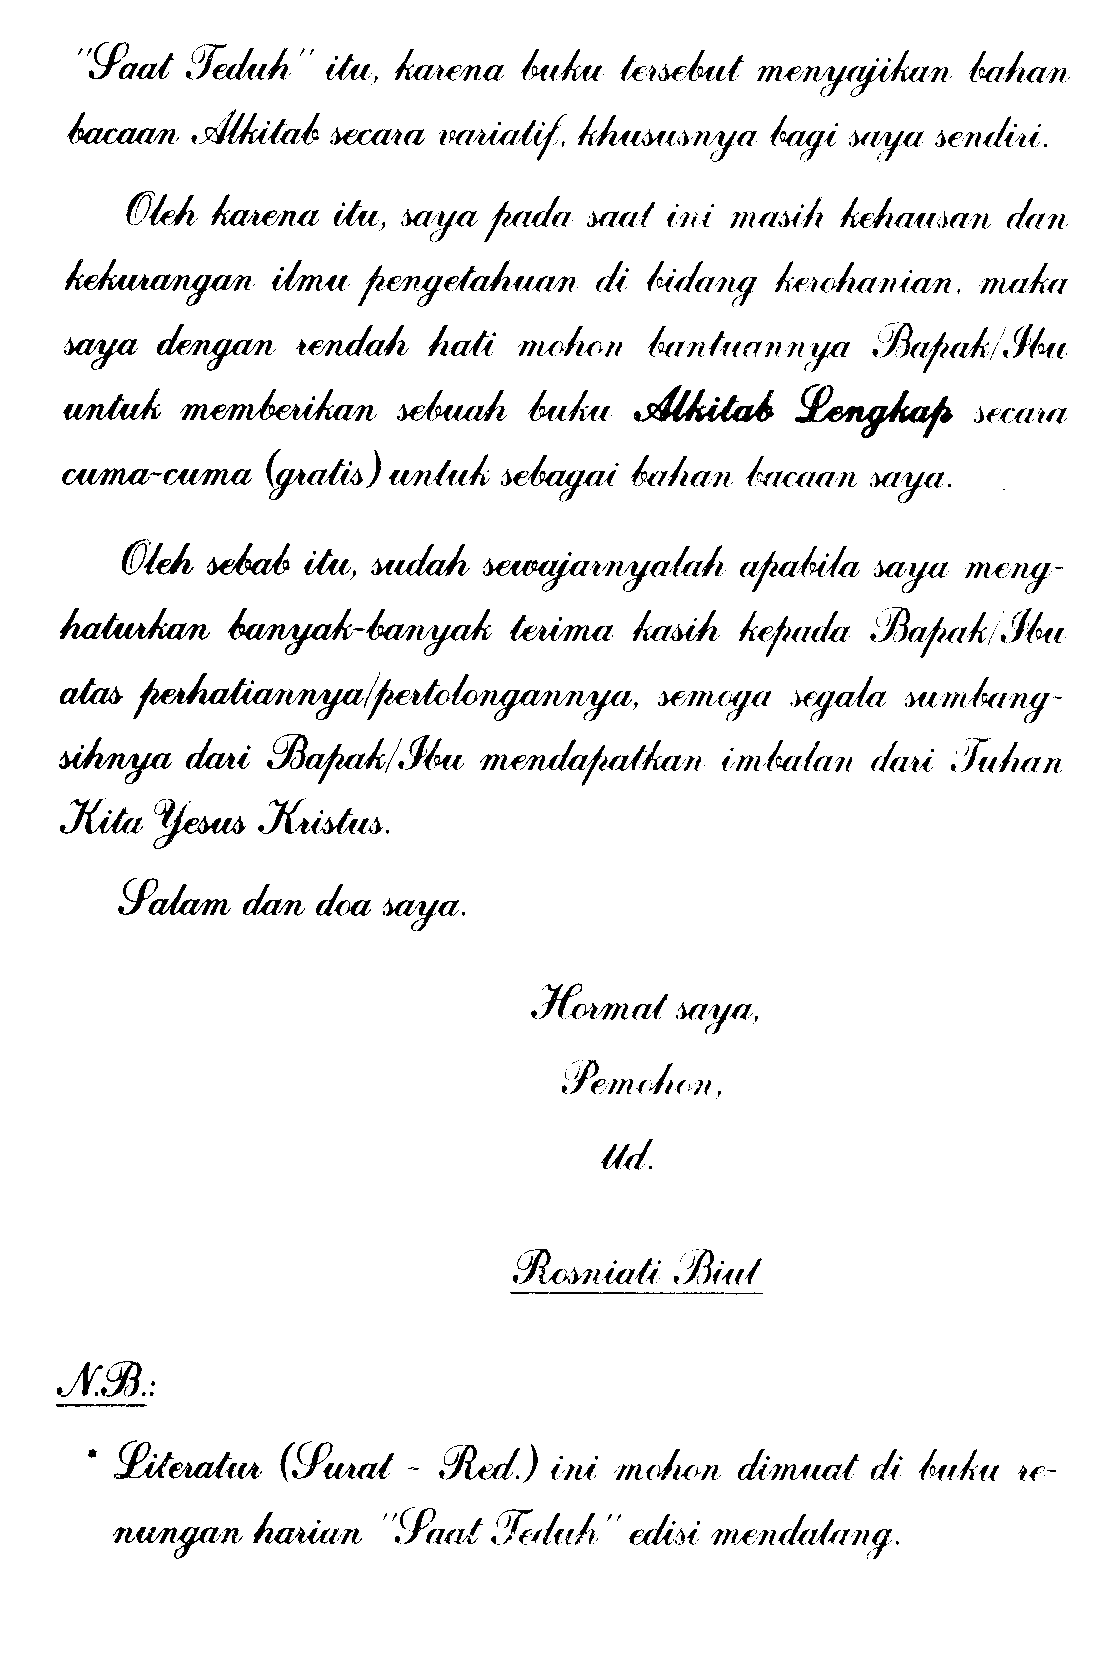 "Saat Teduh" itu, karena buku tersebut menyajikan bahan
bacaan Alkitab secara variatif, khususnya bagi saya sendiri.
Oleh karena itu, saya pada saat ini masih kehausan dan
kekurangan ilmu pengetahuan di bidang kerohanian, maka
saya dengan rendah hati mohon bantuannya Bapak/Ibu
untuk memberikan sebuah buku Alkitab Lengkap secara
cuma-cuma (gratis) untuk sebagai bahan bacaan saya.
Oleh sebab itu, sudah sewajarnyalah apabila saya meng-
haturkan banyak-banyak terima kasih kepada Bapak/Ibu
atas perhatiannya/pertolongannya, semoga segala sumbang-
sihnya dari Bapak/Ibu mendapatkan imbalan dari Tuhan
Kita Yesus Kristus.
Salam dan doa saya.
Hormat saya,
Pemohon,
ttd.
Rosniati Biut
N.B.:
* Literatur (Surat - Red.) ini mohon dimuat di buku re-
nungan harian "Saat Teduh" edisi mendatang.